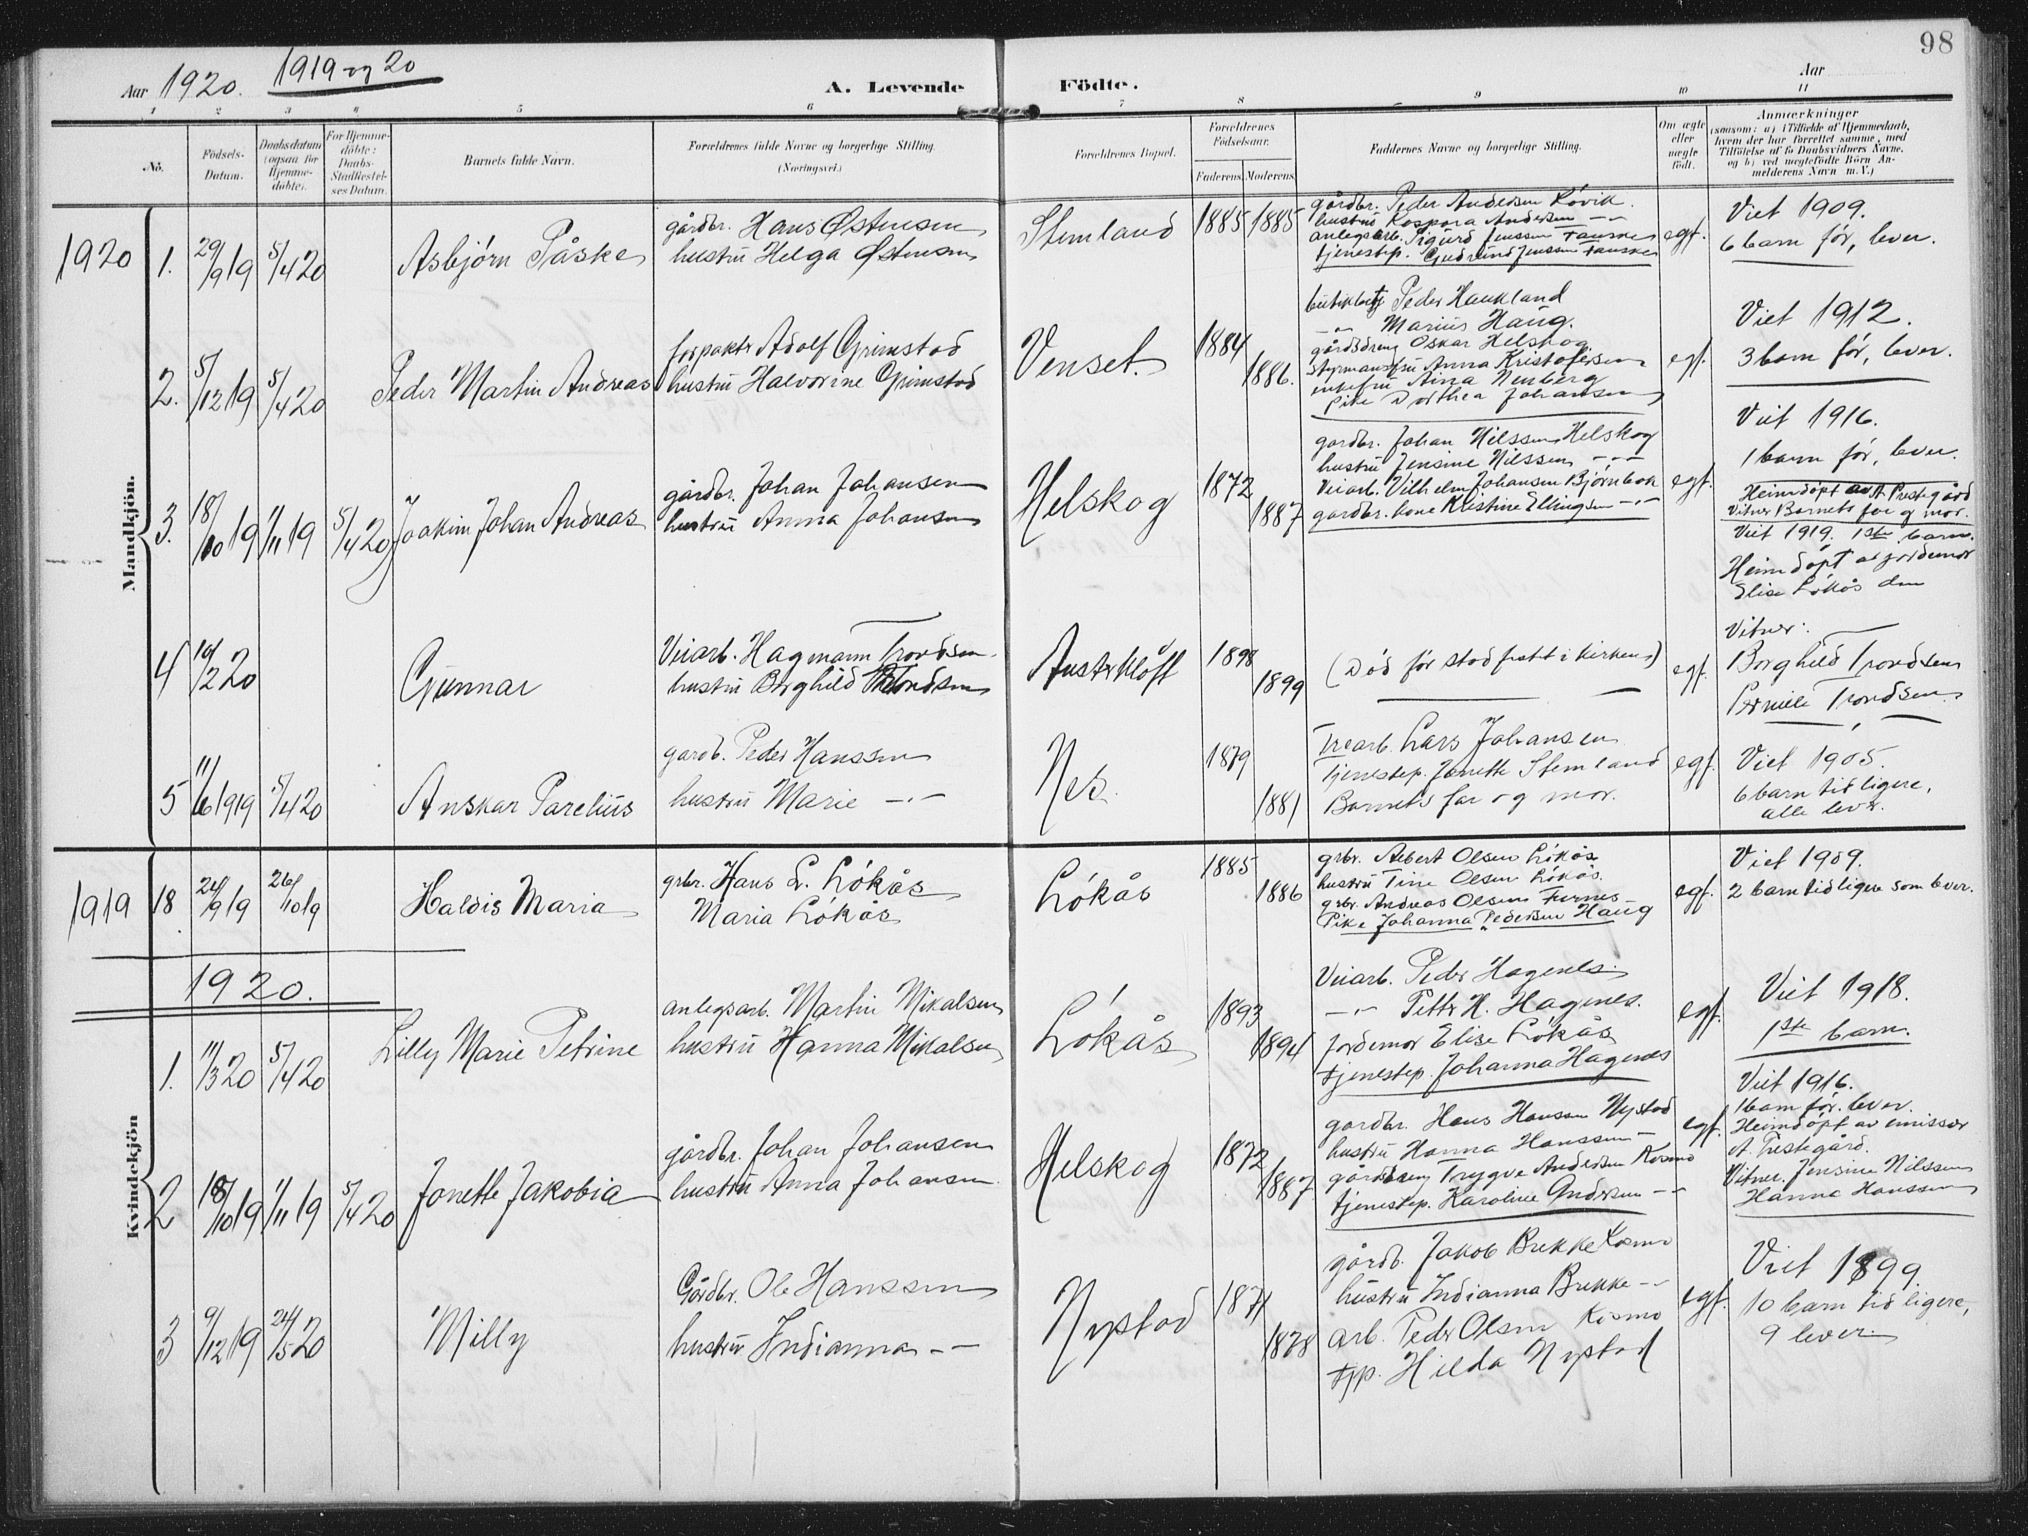 98
Aar 1920. 1919 og 20
A. Levende Födte.
Aar
1 2 3 4 5 6 7 8 9 10 11
No.
Födsels-Datum.
Daabsdatum (ogsaa for Hjemme-döbte).
For Hjemme-döbte: Daabs-Stadfæstel-ses Datum.
Barnets fulde Navn.
Forældrenes fulde Navne og borgerlige Stilling.
(Næringsvei.)
Forældrenes Bopæl.
Forældrenes Födselsaar.
Faderens. Moderens.
Faddernes Navne og borgerlige Stilling.
Om ægte eller uægte födt.
Anmærkninger
(saasom: a) i Tilfælde af Hjemmedaab,
hvem der har forrettet samme, med
Tilföielse af to Daabsvidners Navne,
og b) ved uægtefödte Börn An-
melderens Navn m. V.)
Mandkjön.
1920 1. 29/9 19 5/4 20 Asbjørn Påske
gårdbr. Hans Østensen
hustru Helga Østensen
Stemland 1885 1885
gårdbr. Peder Andersen Røvik.
hustru Kaspara Andersen -"-
anlegsarb. Sigurd Jenssen Fauske
tjenestep. Gudrund Jenssen Fauske
egf.
Viet 1909.
6 barn før, lever.
2. 5/12 19 5/4 20 Peder Martin Andreas
forpaktr Adolf Grimstad
hustru Halvorine Grimstad
Venset. 1884 1886.
Peder Haukland
-"- Marius Haug.
gårdsdreng Oskar Helskog
styrmansfru Anna Kristofersen
enkefru Aina Nenberg
Pike Dorthea Johansen
egf.
Viet 1912.
3 barn før, lever.
3. 18/10 19 1/11 19 5/4 20 Joakim Johan Andreas
gårdbr. Johan Johansen
hustru Anna Johansen
Helskog 1872 1887
gardbr. Johan Nilssen Helskog
hustru Jensine Nilssen -"-
Veiarb. Vilhelm Johansen Bjørnbak
gardbr. kone Kristine Ellingsen -"-
egf.
Viet 1916.
1 barn før, lever.
Heimdøpt av A Prestegård
Vitner Barnets far og mor.
4 19/2 20 Gunnar
Veiarb. Hagmann Trondsen
hustru Borghild Trondsen
Austerkløft 1898 1899
(Død før stadfestet i kirken)
egf.
Viet 1919. 1ste barn.
Heimdøpt av jordemor
Elise Løkås den
Vitner:
Borghild Trondsen
Pernille Trondsen.
5 11/6 1919 5/4 20 Anskar Parelius
gardb. Peder Hanssen
hustru Marie -"-
Nes. 1879 1881
Trearb. Lars Johansen
Tjenestep. Jonette Stemland
Barnets far og mor.
egf.
Viet 1905.
6 barn tidligere,
alle lever.
Kvindekjön
1919 18 24/9 19 26/10 19 Haldis Maria
grbr. Hans L. Løkås
Maria Løkås
Løkås 1885 1886
grbr. Albert Olsen Løkås
hustru Tine Olsen Løkås.
grbr. Andreas Olsen Furnes
Pike Johanna Pedersen Haug
egf.
Viet 1909.
2 barn tidligere som lever.
1920.
1. 11/3 20 5/4 20 Lilly Marie Petrine
anlegsarb. Martin Mikalsen
hustru Hanna Mikalsen
Løkås 1893 1894
Veiarb. Peder Hagenes.
-"- Petter H. Hagenes.
Jordemor Elise Løkås
tjenestep. Johanna Hagenes
egf.
Viet 1918.
1ste barn.
2 18/10 19 1/11 19 5/4 20 Jonette Jakobia
gårdbr. Johan Johansen
hustru Anna Johansen
Helskog 1872 1887
gardbr. Hans Hanssen Nystad
hustru Hanna Hanssen -"-
gårdsdreng Trygve Andersen Kosmo
tjenestep. Karoline Andersen -"-
egf.
Viet 1916.
1 barn før. lever.
Heimdøpt av emissær
A. Prestegård.
Vitner. Jensine Nilssen
Hanna Hanssen
3 9/12 19 24/5 20 Milly
Gårdbr. Ole Hanssen
hustru Indianna -"-
Nystad 1871 1878
gårdb. Jakob Brekke Kosmo
hustru Indianna Brekke -"-
arb. Peder Olsen Kosmo
tjp. Hilda Nystad
egf.
Viet 1899.
10 barn tidligere,
9 lever.